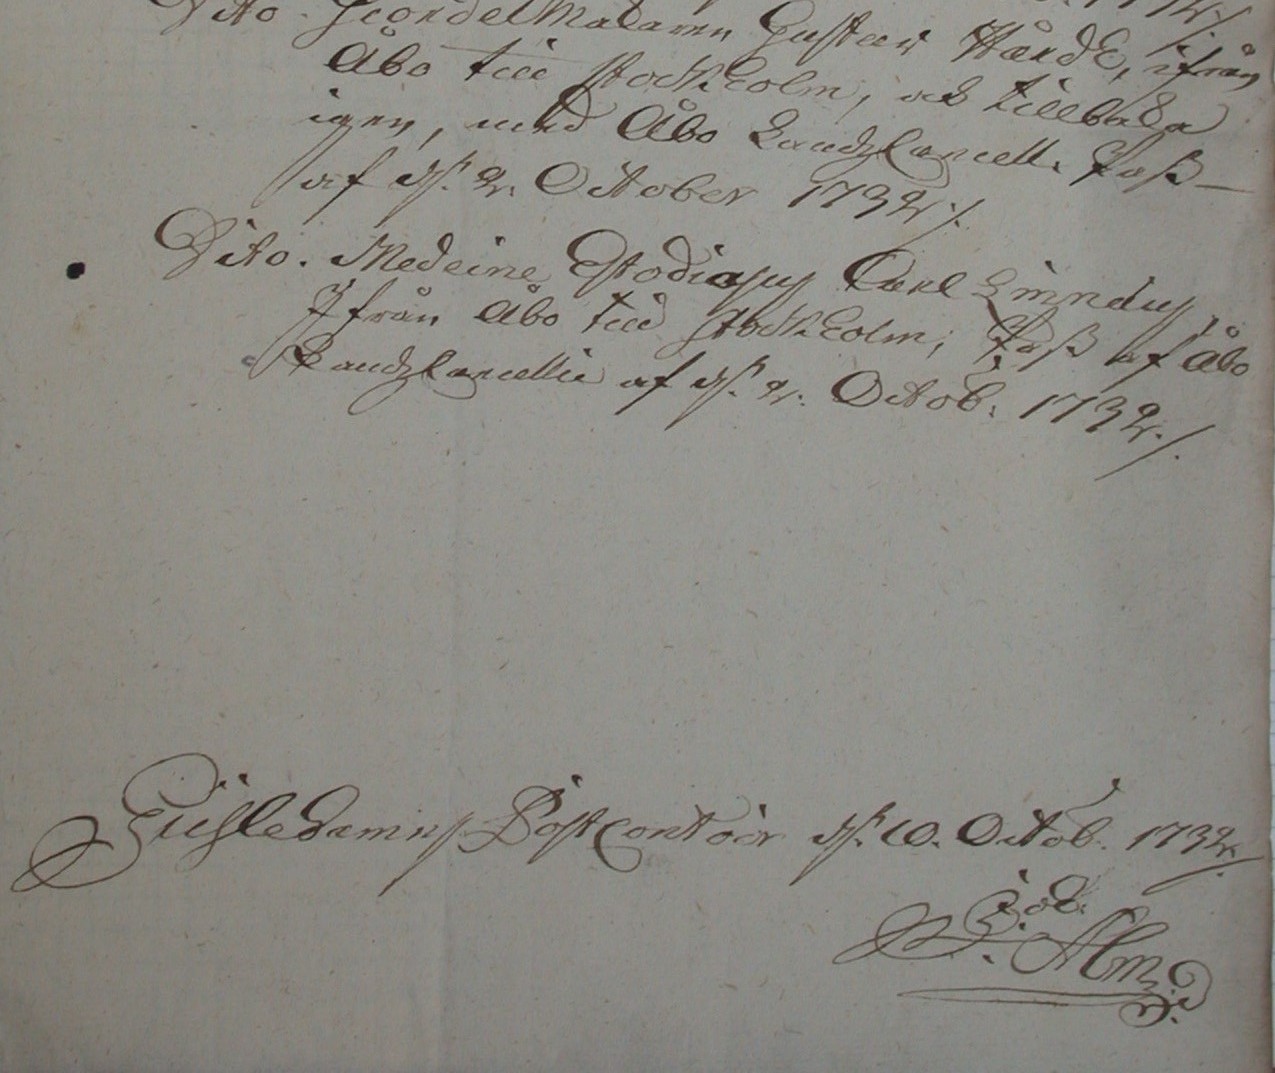 Dito. Gustav Hård, ifrån
Åbo till Stockholm, och tillbaka
igen, med Åbo Landz Cancell. Pass
af d. 2. October 1732 /.
Dito. Medecine Studiosus Carl Linnæus,
Ifrån Åbo till Stockholm, Pass af Åbo
Landz Cancellie af d. 2. Octob. 1732. /.
Grissledamns PostContoir d. 10. Octob. 1732 /.
Joh. Alm